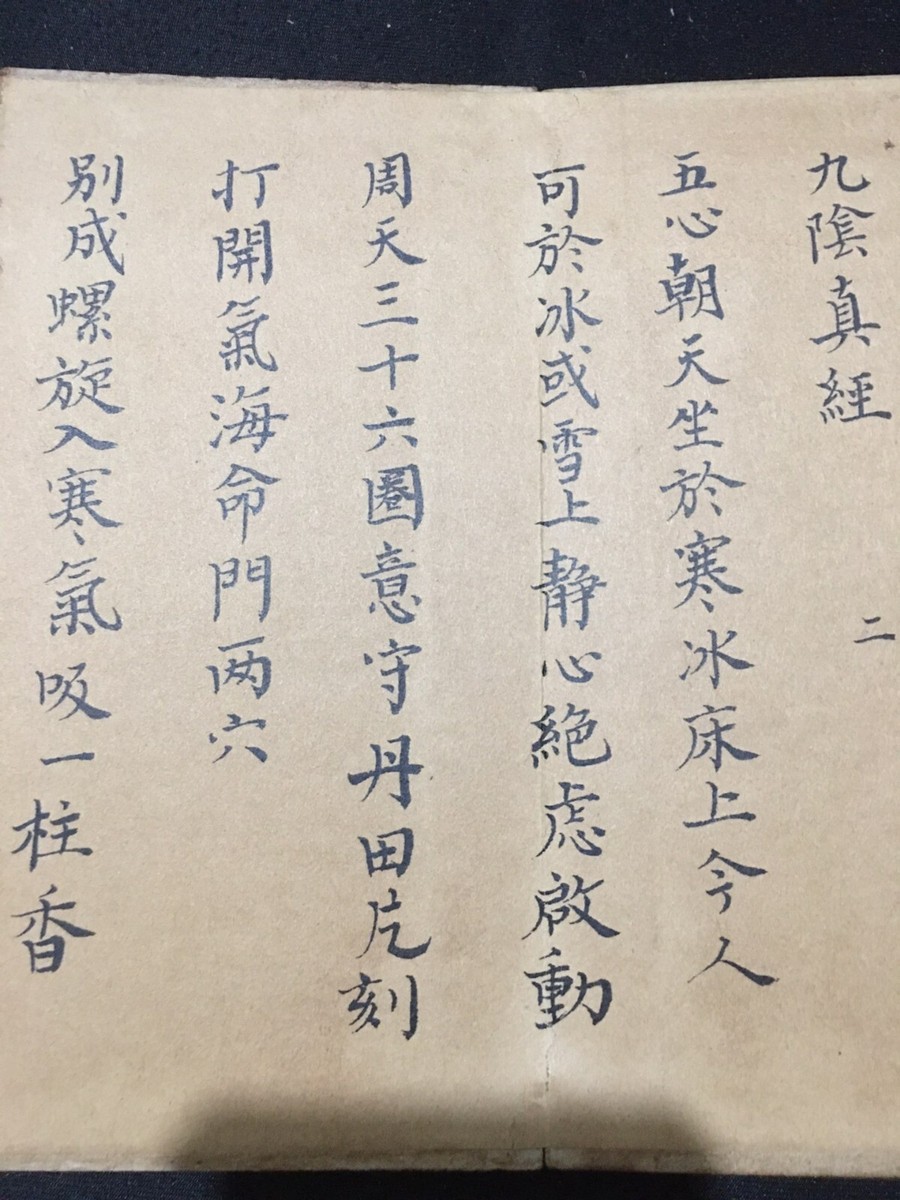 九陰真経
二
五心朝天坐於寒冰床上今人
可於冰或雪上静心絶虑啟動
周天三十六圈意守丹田片刻
打開氣海命門两穴
别成螺旋入寒氣吸一柱香